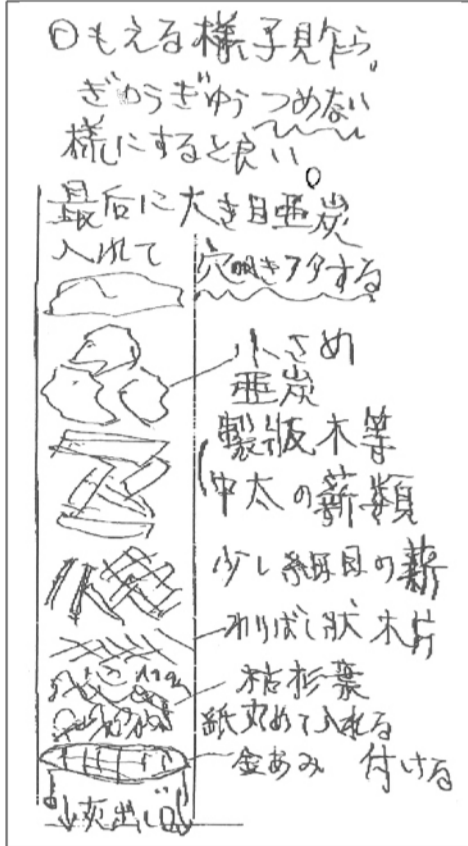 ◎もえる様子見乍ら、
ぎゅうぎゅうつめない
様にすると良い。
最后に大き目亜炭
入れて
穴明きフタする
小さめ
亜炭
製板木等
中太の薪類
少し細目の薪
わりばし状 木片
枯杉葉
紙丸めて入れる
金あみ 付ける
灰出し口